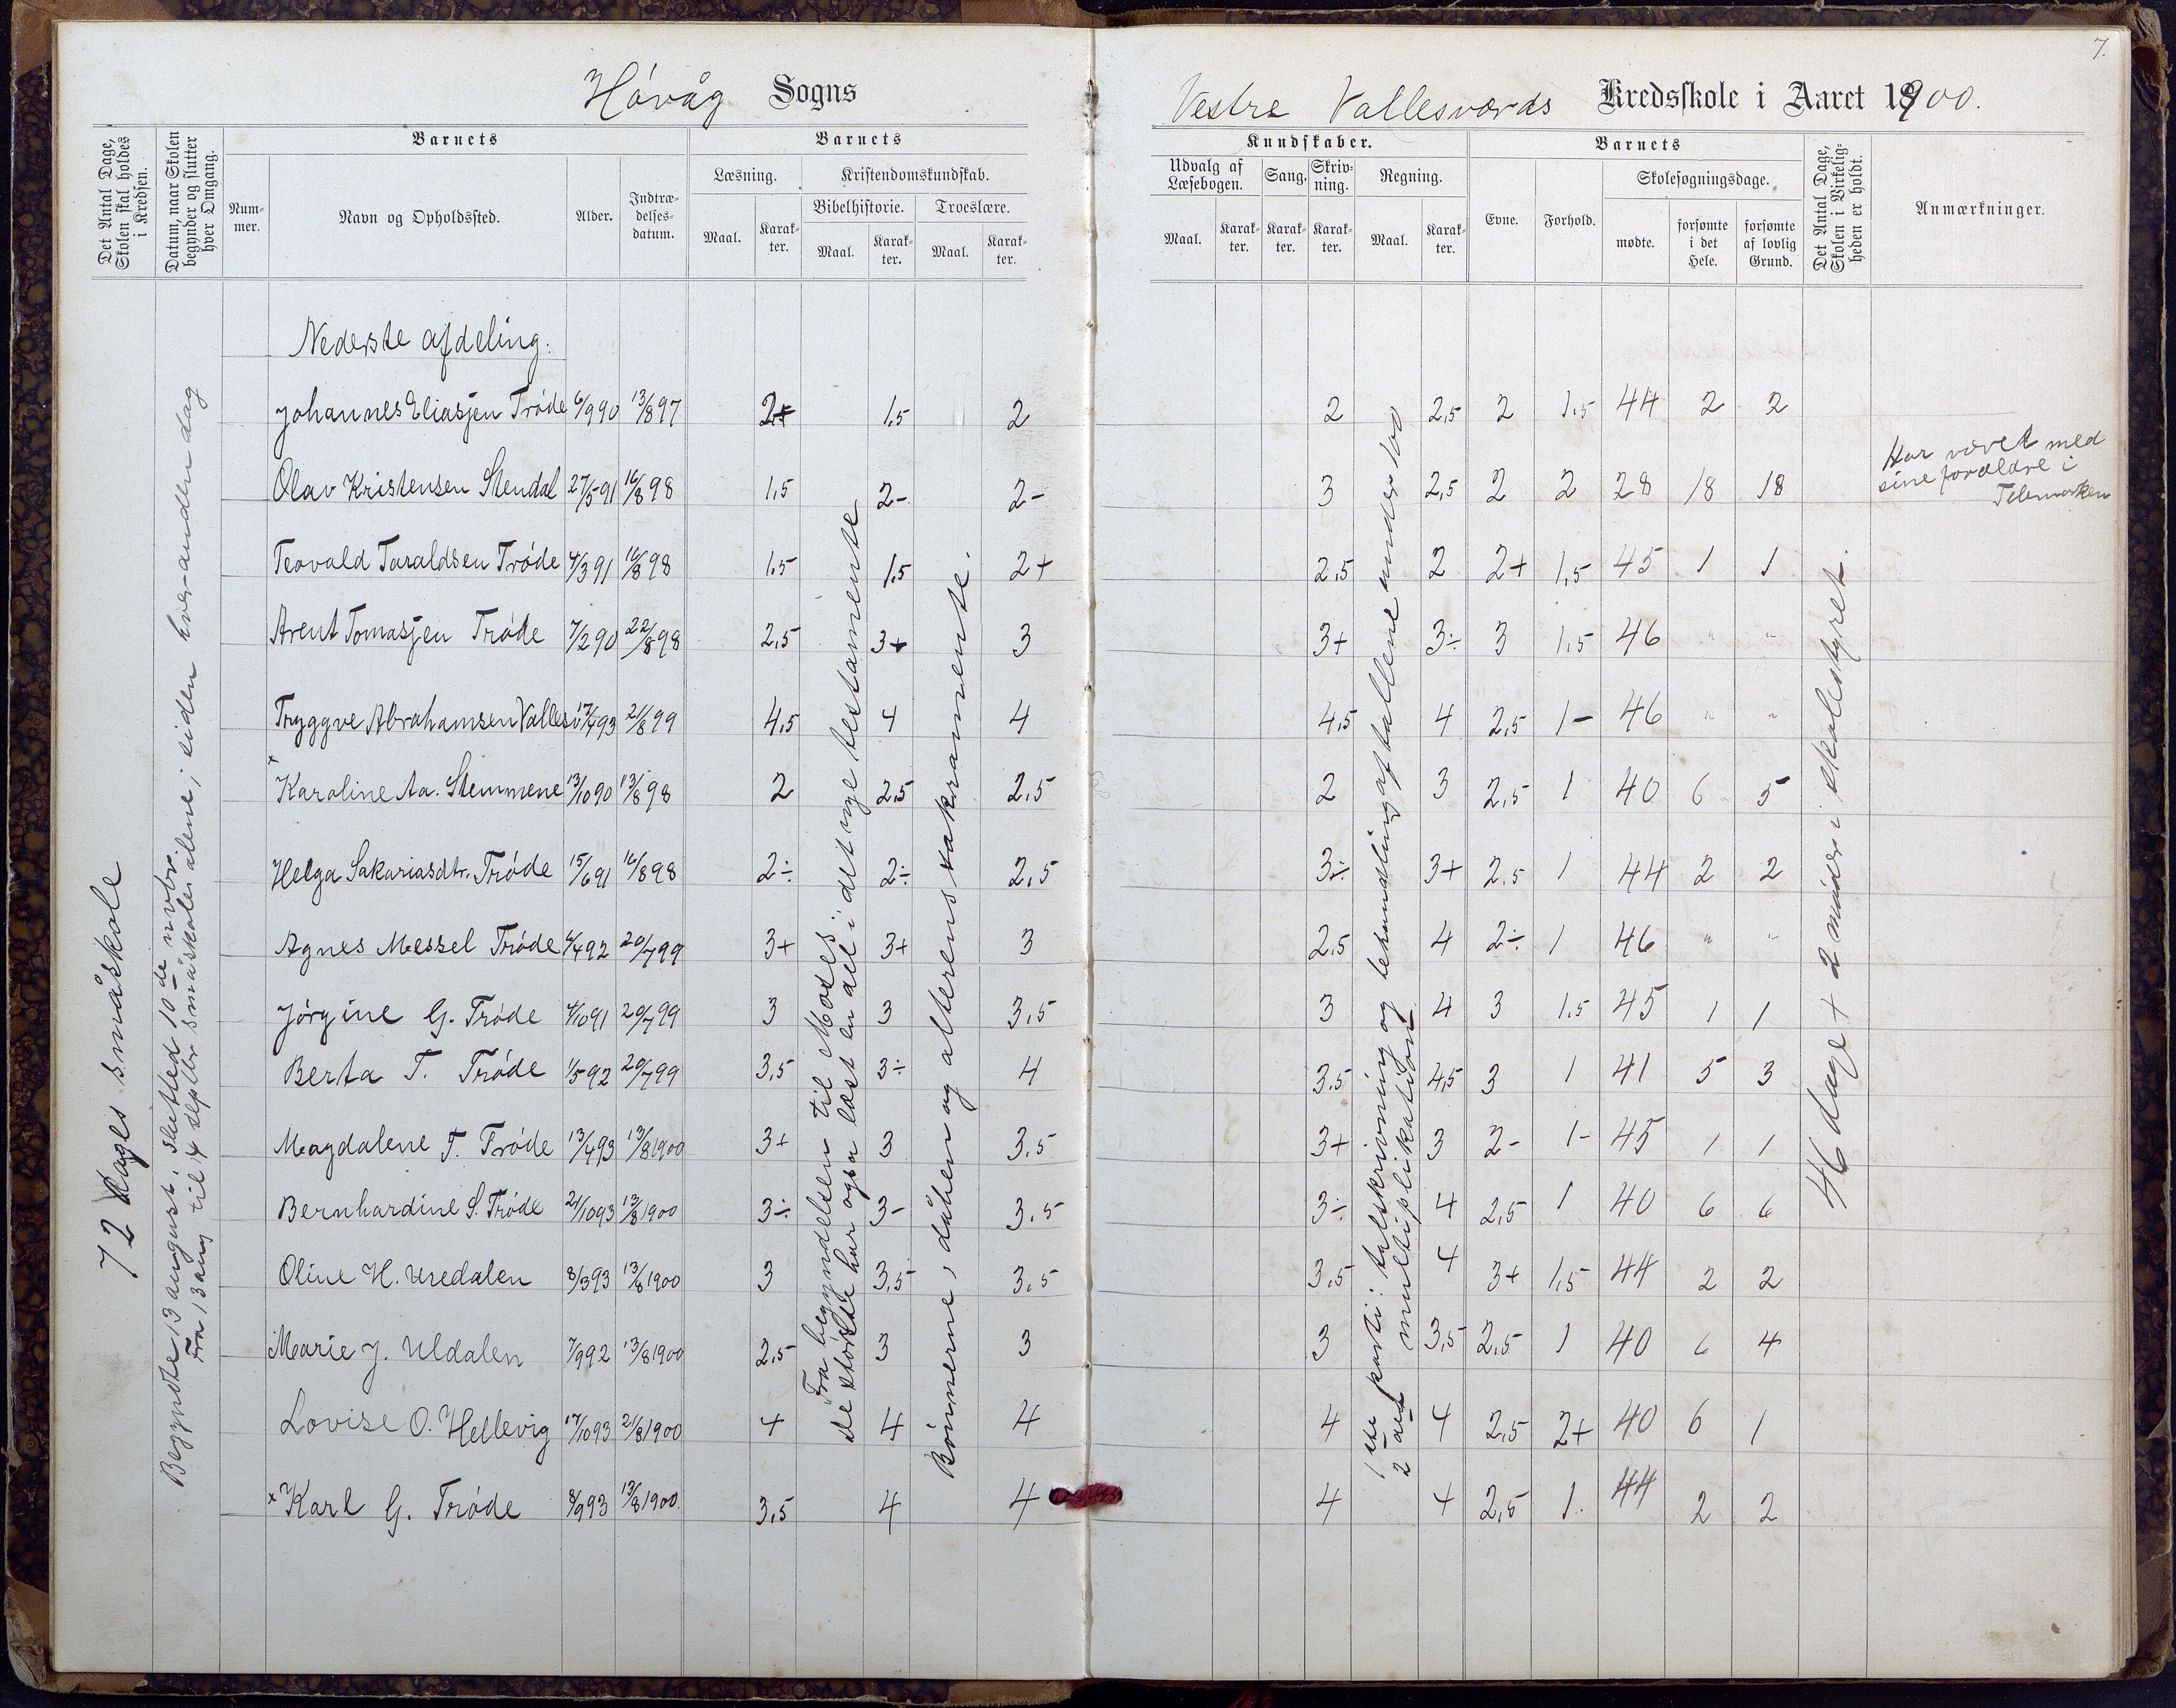 7.
Høvåg Sogns
Vestre Vallesværds Kredsskole i Aaret 1900.
Det Antal Dage, Skolen skal holdes i Kredsen.
Datum, naar Skolen begynder og slutter hver Omgang.
Barnets
Num-mer.
Navn og Opholdssted.
Alder.
Indtræ-delses-datum.
Barnets
Læsning.
Kristendomskundskab.
Bibelhistorie.
Troeslære.
Maal.
Karak-ter.
Maal.
Karak-ter.
Maal.
Karak-ter.
Kundskaber.
Udvalg af Læsebogen.
Sang.
Skriv-ning.
Regning.
Maal.
Karak-ter.
Karak-ter.
Karak-ter.
Maal.
Karak-ter.
Barnets
Evne.
Forhold.
Skolesøgningsdage.
mødte.
forsømte i det Hele.
forsømte af lovlig Grund.
Det Antal Dage, Skolen i Virkelig-heden er holdt.
Anmærkninger.
72 dages småskole
Begyndte 13 august. Slutted 10de novbr.
Fra 13 aug til 4 septbr småskolen alene, siden hver anden dag
Nederste afdeling.
Johannes Eliasjen Trøde 6/9 90 13/8 97 2+ 1,5 2 2 2,5 2 1,5 44 2 2
Olav Kristensen Stendal 27/5 91 16/8 98 1,5 2- 2- 3 2,5 2 2 28 18 18 Har været med sine forældre i Telemarken
Teovald Taraldsen Trøde 4/3 91 16/8 98 1,5 1,5 2+ 2,5 2 2+ 1,5 45 1 1
Arent Tomasjen Trøde 7/2 90 22/8 98 2,5 3+ 3 3+ 3÷ 3 1,5 46 " "
Tryggve Abrahamsen Vallesv 17/4 93 21/8 99 4,5 4 4 4,5 4 2,5 1- 46 " "
Karoline Aa. Stemmene 13/10 90 13/8 98 2 2,5 2,5 2 3 2,5 1 40 6 5
Helga Sakariasdtr. Trøde 15/6 91 16/8 98 2÷ 2÷ 2,5 3÷ 3+ 2,5 1 44 2 2
Agnes Messel Trøde 6/4 92 20/7 99 3+ 3+ 3 2,5 4 2÷ 1 46 " "
Jørgine G. Trøde 4/10 91 20/7 99 3 3 3,5 3 4 3 1,5 45 1 1
Berta T. Trøde 1/5 92 20/7 99 3,5 3÷ 4 3,5 4,5 3 1 41 5 3
Magdalene T. Trøde 13/4 93 13/8 1900 3+ 3 3,5 3+ 3 2- 1- 45 1 1
Bernhardine S. Trøde 21/10 93 13/8 1900 3÷ 3- 3,5 3÷ 4 2,5 1 40 6 6
Oline H. Uredalen 8/3 93 13/8 1900 3 3,5 3,5 3,5 4 3+ 1,5 44 2 2
Marie J. Uldalen 7/9 92 13/8 1900 2,5 3 3 3 3,5 2,5 1 40 6 4
Lovise O. Hellevig 17/10 93 21/8 1900 4 4 4 4 4 2,5 2+ 40 6 1
+ Karl G. Trøde 8/9 93 13/8 1900 3,5 4 4 4 4 2,5 1 44 2 2
Fra begyndelsen til Moses;
de største har også læst en del i det nye testamente
Bønnerne, dåben og alterens sakramente.
1ste parti: talskrivning og behandling af tallene under 100
2det multiplikation
46 dage + 2 møder i skolestyret.